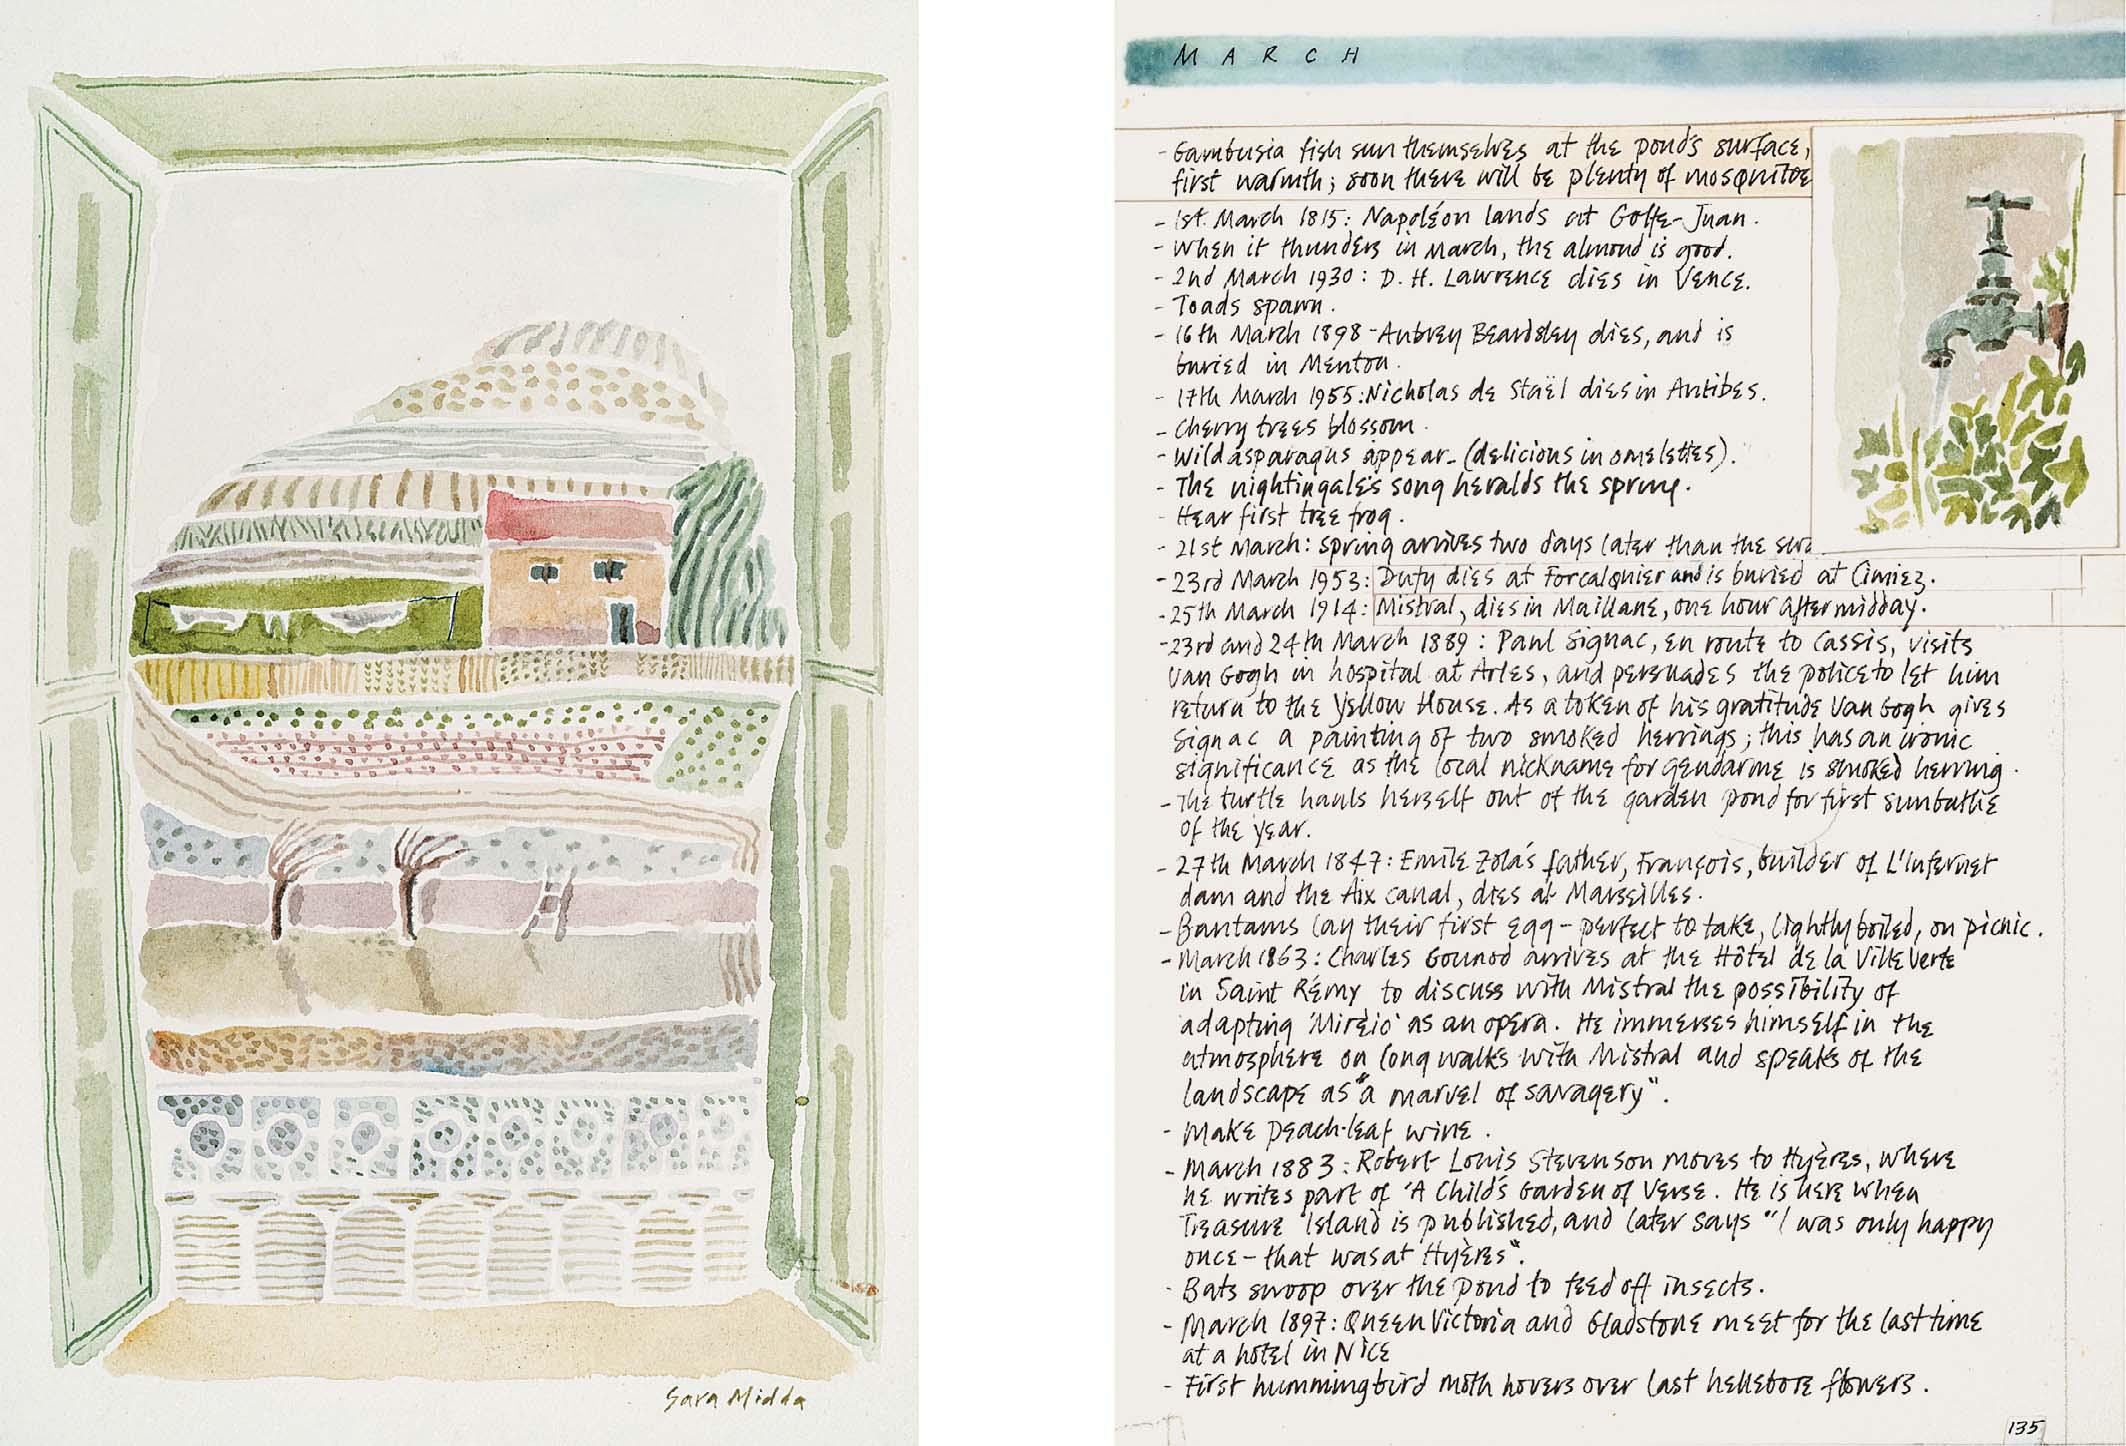 Sara Midda
MARCH
- Gambusia fish sun themselves at the pond's surface,
first warmth; soon there will be plenty of mosquitoe
- 1st. March 1815: Napoléon lands at Golfe-Juan.
- When it thunders in March, the almond is good.
- 2nd March 1930: D. H. Lawrence dies in Vence.
- Toads spawn.
- 16th March 1898 - Aubrey Beardsley dies, and is
buried in Menton.
- 17th March 1955: Nicholas de Staël dies in Antibes.
- Cherry trees blossom.
- Wild asparagus appear - (delicious in omelettes).
- The nightingale's song heralds the spring.
- Hear first tree frog.
- 21st March: Spring arrives two days later than the
- 23rd March 1953: Dufy dies at Forcalquier and is buried at Cimiez.
- 25th March 1914: Mistral, dies in Maillane, one hour after midday.
- 23rd and 24th March 1889: Paul Signac, en route to Cassis, visits
Van Gogh in hospital at Arles, and persuades the police to let him
return to the Yellow House. As a token of his gratitude Van Gogh gives
Signac a painting of two smoked herrings; this has an ironic
significance as the local nickname for gendarme is smoked herring.
- The turtle hauls herself out of the garden pond for first sunbathe
of the year.
- 27th March 1847: Emile Zola's father, François, builder of L'Infernet
dam and the Aix canal, dies at Marseilles.
- Bantams lay their first egg - perfect to take, lightly boiled, on picnic.
- March 1863: Charles Gounod arrives at the Hôtel de la Ville Verte
in Saint Rémy to discuss with Mistral the possibility of
adapting 'Mirèio' as an opera. He immerses himself in the
atmosphere on long walks with Mistral and speaks of the
landscape as "a marvel of savagery".
- Make peach-leaf wine.
- March 1883: Robert Louis Stevenson moves to Hyères, where
he writes part of 'A Child's Garden of Verse. He is here when
Treasure Island is published, and later says "I was only happy
once - that was at Hyères".
- Bats swoop over the pond to feed off insects.
- March 1897: Queen Victoria and Gladstone meet for the last time
at a hotel in Nice
- First hummingbird moth hovers over last hellebore flowers.
135